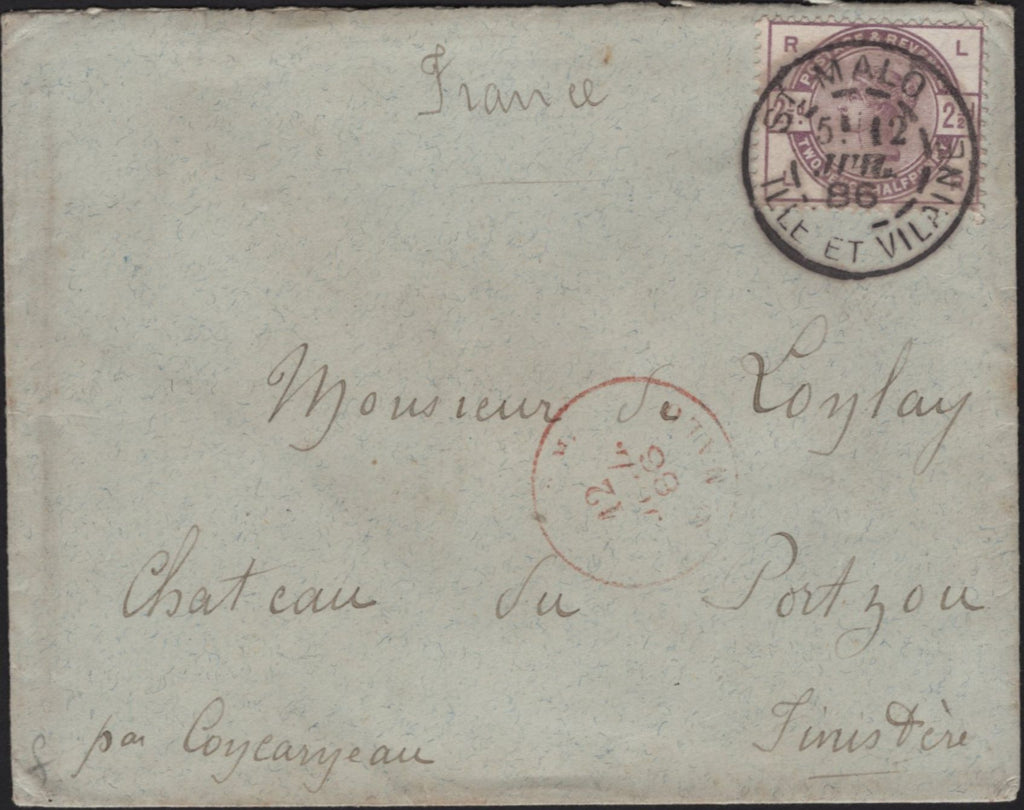 France
R L
POSTAGE & REVENUE
2½d 2½d
TWO HALFPENCE
ST MALO
12
86
ILLE ET VILAINE
Monsieur de Loylay
12
86
Chateau du Portzou
par Concarneau Finistère